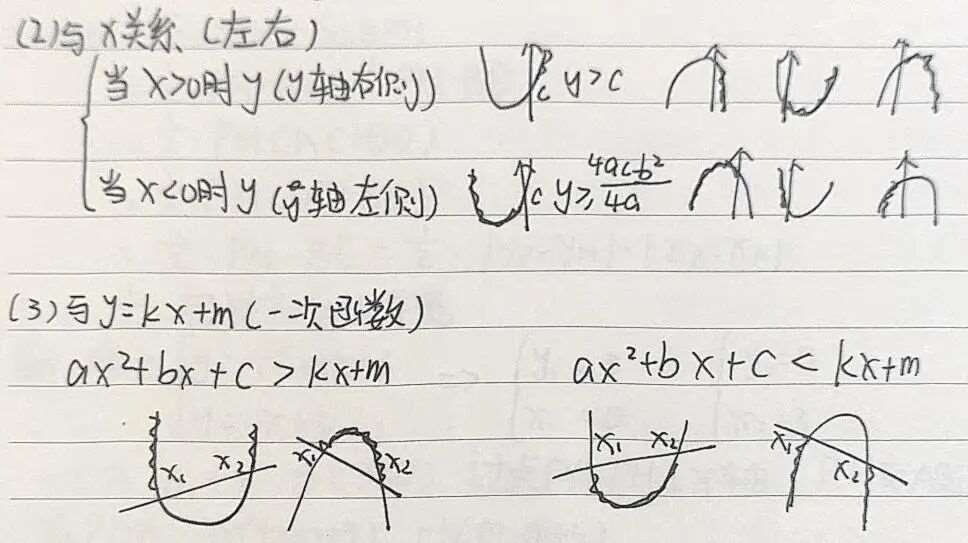 (2)与x关系(左右)
当x>0时y(y轴右侧) c y>c
当x<0时y(y轴左侧) c y≥(4ac-b²)/4a
(3)与y=kx+m(一次函数)
ax²+bx+c>kx+m ax²+bx+c<kx+m
x₁ x₂ x₁ x₂ x₁ x₂ x₁ x₂